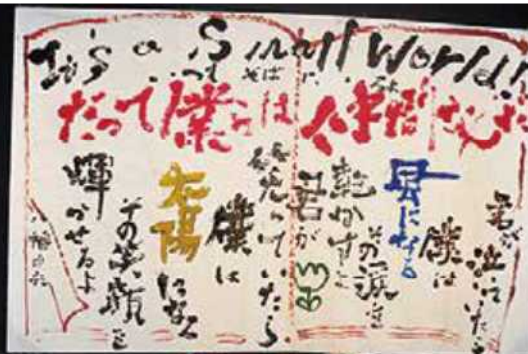 It's a Small World!
そばに
だって僕らは仲間なんだ
君が泣いていたら
僕は
風になる
その涙を
乾かすよ
君が
笑っていたら
僕は
太陽になる
その笑顔を
輝かせるよ